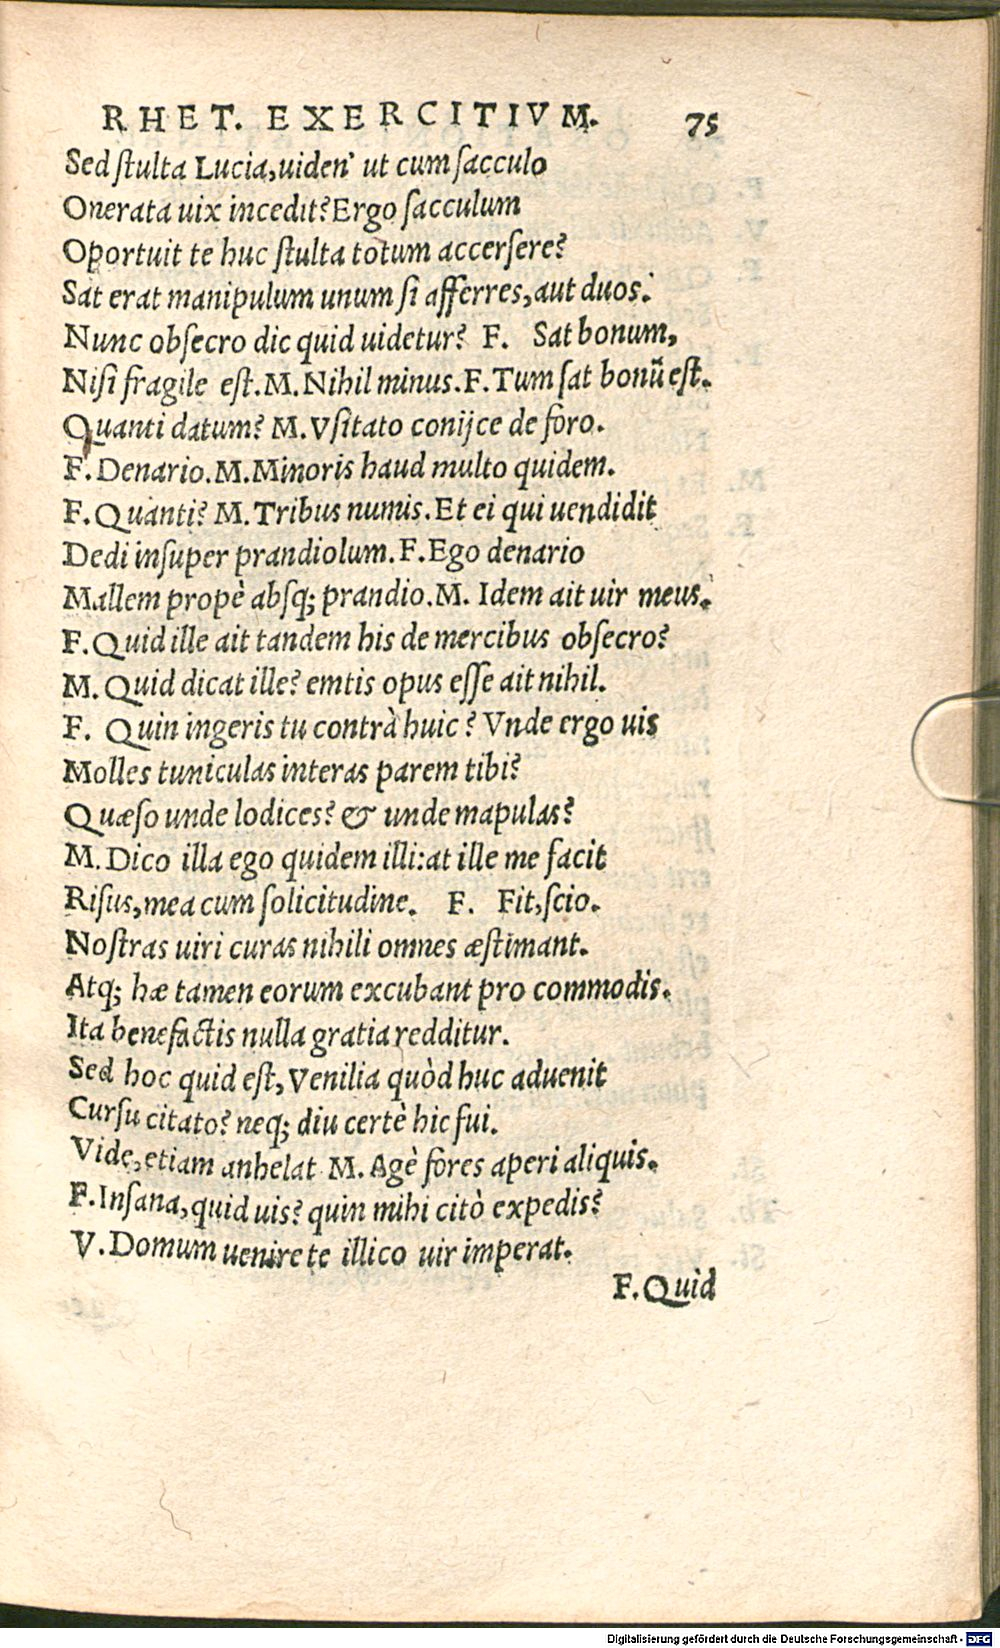 RHET. EXERCITIVM. 75
Sed ſtulta Lucia, uiden' ut cum ſacculo
Onerata uix incedit? Ergo ſacculum
Oportuit te huc ſtulta totum accerſere?
Sat erat manipulum unum ſi afferres, aut duos.
Nunc obſecro dic quid uidetur? F. Sat bonum,
Niſi fragile eſt. M. Nihil minus. F. Tum ſat bonũ eſt.
Quanti datum? M. Vſitato conijce de foro.
F. Denario. M. Minoris haud multo quidem.
F. Quanti? M. Tribus numis. Et ei qui uendidit
Dedi inſuper prandiolum. F. Ego denario
Mallem propè abſq; prandio. M. Idem ait uir meus.
F. Quid ille ait tandem his de mercibus obſecro?
M. Quid dicat ille? emtis opus eſſe ait nihil.
F. Quin ingeris tu contrà huic? Vnde ergo uis
Molles tuniculas interas parem tibi?
Quæſo unde lodices? & unde mapulas?
M. Dico illa ego quidem illi: at ille me facit
Riſus, mea cum ſolicitudine. F. Fit, ſcio.
Noſtras uiri curas nihili omnes æſtimant.
Atq; hæ tamen eorum excubant pro commodis.
Ita benefactis nulla gratia redditur.
Sed hoc quid eſt, Venilia quòd huc aduenit
Curſu citato? neq; diu certè hic fui.
Vide, etiam anhelat M. Agè fores aperi aliquis.
F. Inſana, quid uis? quin mihi citò expedis?
V. Domum uenire te illico uir imperat.
F. Quid
Digitalisierung gefördert durch die Deutsche Forschungsgemeinschaft - DFG